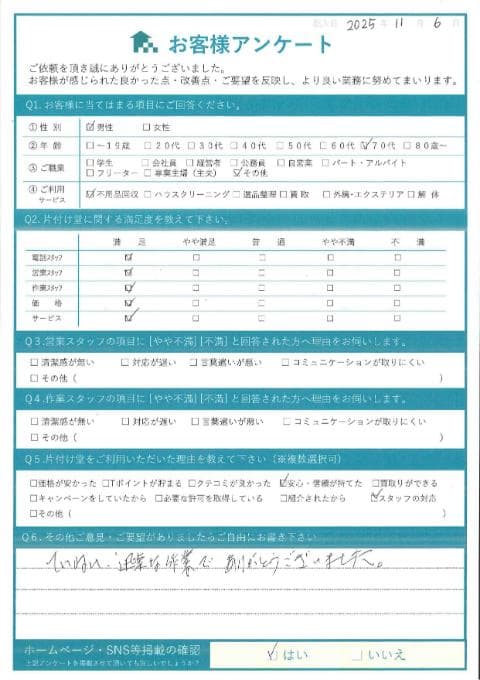 記入日 2025年 11月 6日
お客様アンケート
ご依頼を頂き誠にありがとうございました。
お客様が感じられた良かった点・改善点・ご要望を反映し、より良い業務に努めてまいります。
Q1.お客様に当てはまる項目にご回答ください。
①性 別 ☑男性 □女性
②年 齢 □~19歳 □20代 □30代 □40代 □50代 □60代 ☑70代 □80歳~
③ご職業 □学生 □会社員 □経営者 □公務員 □自営業 □パート・アルバイト
□フリーター □専業主婦（主夫） ☑その他
④ご利用サービス ☑不用品回収 □ハウスクリーニング □遺品整理 □買 取 □外構・エクステリア □解 体
Q2.片付け堂に関する満足度を教えて下さい。
満 足 やや満足 普 通 やや不満 不 満
電話スタッフ ☑ □ □ □ □
営業スタッフ ☑ □ □ □ □
作業スタッフ ☑ □ □ □ □
価 格 ☑ □ □ □ □
サービス ☑ □ □ □ □
Q3.営業スタッフの項目に［やや不満］［不満］と回答された方へ理由をお伺いします。
□清潔感が無い □対応が遅い □言葉遣いが悪い □コミュニケーションが取りにくい
□その他（ ）
Q4.作業スタッフの項目に［やや不満］［不満］と回答された方へ理由をお伺いします。
□清潔感が無い □対応が遅い □言葉遣いが悪い □コミュニケーションが取りにくい
□その他（ ）
Q5.片付け堂をご利用いただいた理由を教えて下さい（※複数選択可）
□価格が安かった □Tポイントが貯まる □クチコミが良かった ☑安心・信頼が持てた □買取りができる
□キャンペーンをしていたから □必要な許可を取得している □紹介されたから ☑スタッフの対応
□その他（ ）
Q6.その他ご意見・ご要望がありましたらご自由にお書き下さい
ていねい、迅速な作業で ありがとうございました。
ホームページ・SNS等掲載の確認 ☑はい □いいえ
上記アンケートを掲載させて頂いても宜しいでしょうか？